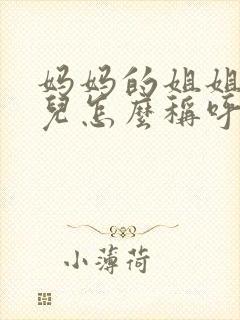 妈妈的姐姐
兒怎麼稱呼
小薄荷